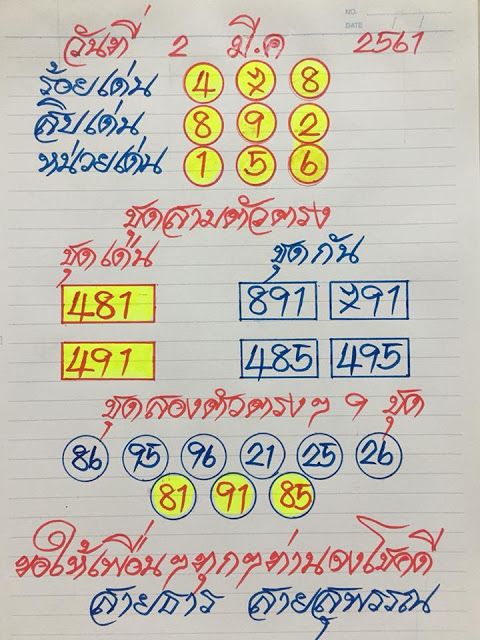 NO.
DATE / /
วันที่ 2 มี.ค 2561
ร้อยเด่น 4 7 8
สิบเด่น 8 9 2
หน่วยเด่น 1 5 6
ชุดสามตัวตรง
ชุดเด่น ชุดกัน
481 891 791
491 485 495
ชุดสองตัวตรงๆ 9 ชุด
86 95 96 21 25 26
81 91 85
ขอให้เพื่อนๆทุกๆท่านจงโชคดี
สายธาร สายสุพรรณ